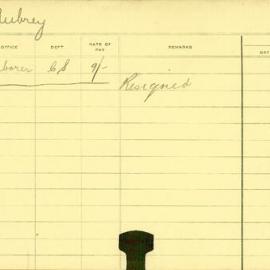 Aubrey
OFFICE DEPT RATE OF PAY REMARKS DAT
borer C.S 9/- Resigned